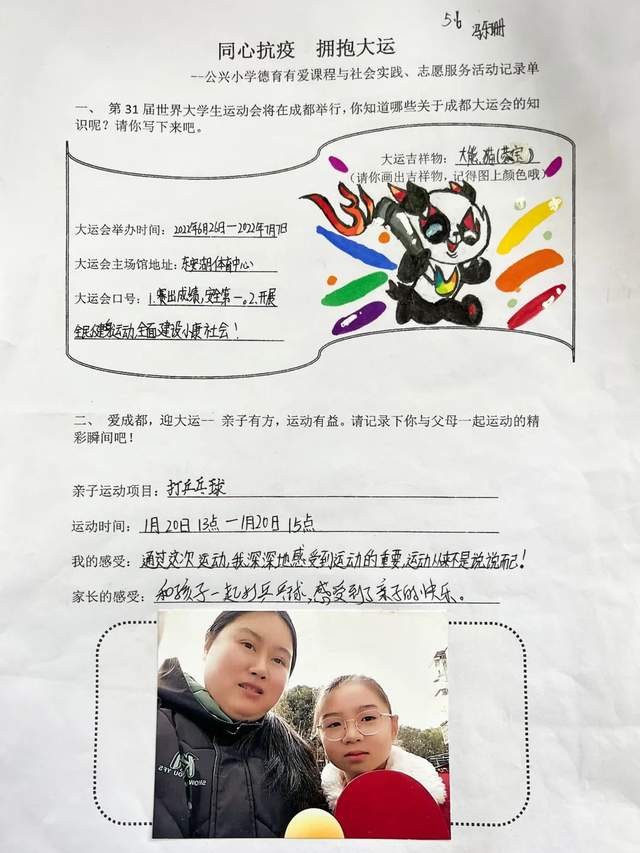 5.6 冯乐珊
同心抗疫 拥抱大运
--公兴小学德育有爱课程与社会实践、志愿服务活动记录单
一、 第 31 届世界大学生运动会将在成都举行，你知道哪些关于成都大运会的知
识呢？请你写下来吧。
大运吉祥物： 大熊猫(蓉宝)
（请你画出吉祥物，记得图上颜色哦）
大运会举办时间：2022年6月26日一2022年7月7日
大运会主场馆地址：东安湖体育中心
大运会口号：1.赛出成绩，安全第一。2.开展
全民健身运动，全面建设小康社会！
二、 爱成都，迎大运-- 亲子有方，运动有益。请记录下你与父母一起运动的精
彩瞬间吧！
亲子运动项目：打乒乓球
运动时间：1月20日13点一1月20日15点
我的感受：通过这次运动，我深深地感受到运动的重要，运动从来不是说说而已！
家长的感受：和孩子一起打乒乓球，感受到了亲子的快乐。